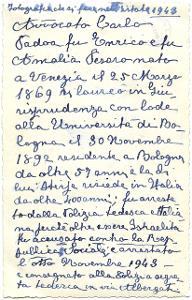 Fotografia di
1943
Avvocato Carlo
Sadoa fu Enrico e fu
Amalia Pesaro nato
a Venezia il 25 Marzo
1869 si laureò in Giu
risprudenza con lode
alla Università di Bo
logna il 30 Novembre
1892 residente a Bologna
da oltre 57 anni e la di
lui stirpe risiede in Italia
da oltre 400 anni fu arre
stato dalla Polizia tedesca e Italia
na perché oltre essere Israelita
fu accusato contro la Rep
pubblica Sociale e arrestato
il Novembre 1943
e consegnato alla Polizia segre
ta tedesca in via Albergati